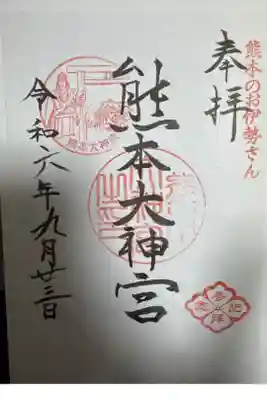 熊本のお伊勢さん
奉拝
熊本大神宮
令和六年九月廿三日
熊本大神宮
参拝記念